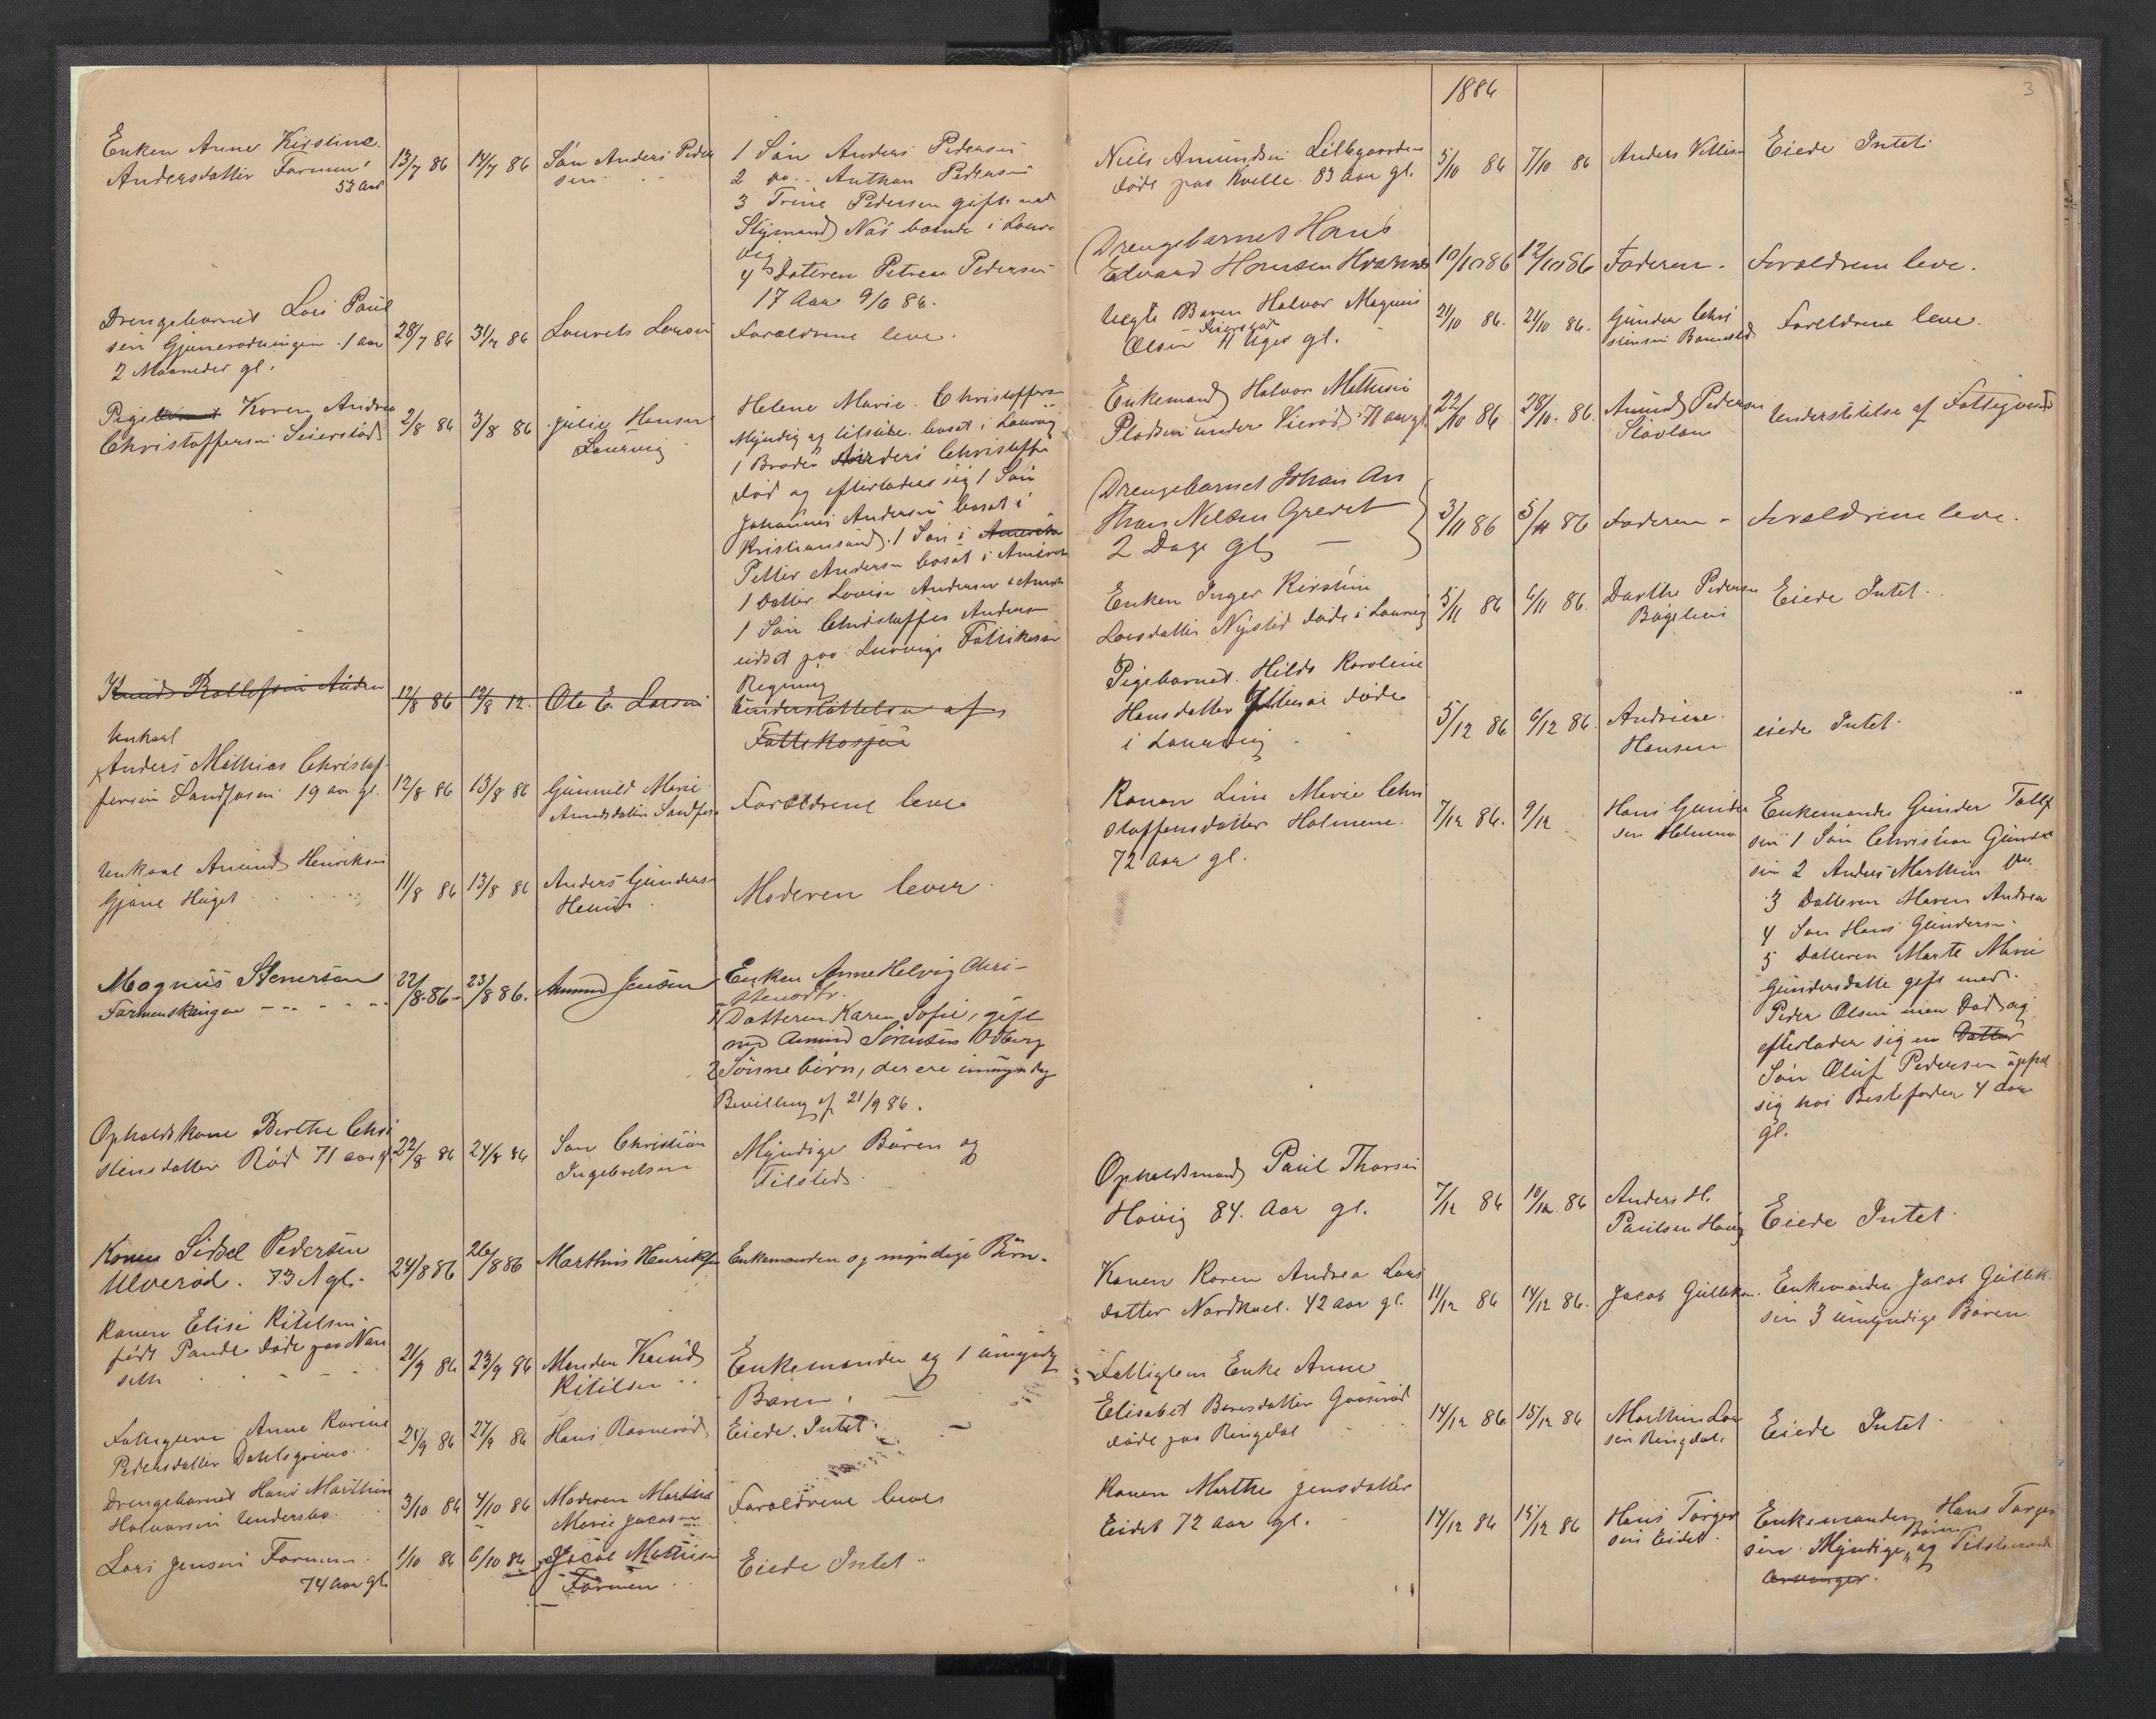 Enken Anne Kirstine
Andersdatter Farmen
53 aar
13/7 86
14/7 86
Sön Anders Peder
sen
1 Sön Anders Pedersen
2 do Anthon Pedersen
3 Trine Pedersen gift med
Styrmand Näs boende i Laur
vig
4 Datteren Petrea Pedersen
17 Aar 9/6 86.
Drengebarnet Lars Paul
sen 1 aar
2 Maaneder gl.
28/7 86
31/7 86
Laurets Larsen
Forældrene leve.
Pigebarnet Karen Andrea
Christoffersen Seierstad
2/8 86
3/8 86
Julie Hansen
Laurvig
Helene Marie Christoffersen
Myndig og tilstede. bosat i Laurvig
1 Broder Anders Christoffer
död og efterlader sig 1 Sön
Johannes Andersen bosat i
Kristiansand. 1 Sön i Amerika
Petter Andersen bosat i Amerika
1 Datter Lovise Andersen i Amrk
1 Sön Christoffer Andersen
Regning
Knud Rollefsen Auden
12/8 86
12/8 12.
Ole E. Larsen
Understöttelse af
Fattikassen
Unkarl
Anders Mathias Christof
fersen Sandfasen 19 aar gl.
12/8 86
13/8 86
Gunnild Marie
Amundsdatter Sandfas
Forældrene leve
Unkarl Amund Henriksen
Gjöne Huget
11/8 86
13/8 86
Anders Gundersen
Moderen lever
Magnus Stenersen
Farmenskaugen
22/8 86
23/8 86.
Amund Jensen
Enken Anne Helvig Chri-
stensdtr.
1 Datteren Karen Sofie, gift
med Amund Sörensen Odberg
2 Sönnebörn, der ere umyndig
Bevilling af 21/9 86.
Opholdskone Berthe Chri
stensdatter Röd 71 aar gl
22/8 86
24/8 86
Sön Christian
Ingebretsen
Myndige Bören og
Tilsteds
Konen Sidsel Pedersen
Ulveröd. 73 A gl.
24/8 86
26/8 86
Marthin Henriksen
Enkemanden og myndige Börn.
Konen Elise Kitilsen
födt Pande döde paa Nan
seth
21/9 86
23/9 86
Manden Knud
Kitilsen
Enkemanden og 1 umyndg
Bören.
Anne Karine
Pedersdatter
25/9 86
27/9 86
Hans Ravneröd
Eiede Intet
Drengebarnet Hans Marthin
Halvorsen Undersbo
3/10 86
4/10 86
Moderen Marthe
Marie Jacobsen
Forældrene lever
Lars Jensen Farmen
74 aar gl
1/10 86
6/10 86
Jacob Mathisen
Farmen
Eiede Intet
1886
3
Niels Amundsen Lillegaarden
döde paa Kvelle 83 Aar gl.
5/10 86
7/10 86
Anders Nillsen
Eiede Intet.
Drengebarnet Hans
Edvard Hansen
10/10 86
12/10 86
Faderen.
Forældrene leve.
Uegte Baren Halvor Magnus
Seierstad
Olsen 11 Uger gl.
21/10 86.
21/10 86.
Gunder Chri
stensen
Forældrene leve.
Enkemand Halvor Mathisen
Pladsen under Vieröd 71 aar gl
22/10 86
28/10. 86.
Amund Pedersen
Understötelse af Fattigvæsen
Drengebarnet Johan An
thon Nilsen Grevet
2 Dage gl
3/11 86
5/11 86
Faderen
Forældrene leve.
Enken Inger Kirstine
Larsdatter Nysted döde i Laurvig
5/11 86
6/11 86.
Dorthe Pedersen
Bögelien
Eiede Intet.
Pigebarnet Hilda Karoline
Hansdatter döde
i Laurvig
5/12 86
6/12 86.
Andrine
Hansen
eiede Intet.
Konen Line Marie Chri
stoffersdatter Holmene
72 Aar gl.
7/12 86.
9/12
Hans Gunder
sen Holmene
Enkemande Gunder Tollef
sen 1 Sön Christian Gunder
sen 2 Anders Marthin do
3 Datteren Maren Andrea
4 Sön Hans Gundersen
5 Datteren Marte Marie
Gundersdatte gift med
Peder Olsen men Död og
efterlader sig en Datter
Sön Oluf Pedersen oppholder
sig hos Bestefader 4 aar
gl.
Opholdsmand Paul Thorsen
Hovig 84. Aar gl.
7/12 86
10/12 86
Anders H.
Paulsen Hovig
Eiede Intet
Konen Karen Andrea Lars
datter Nordkvel. 42 aar gl.
11/12 86
14/12 86.
Jacob Gulliksen
Enkemanden Jacob Gullik
sen 3 umyndige Bören
Fattiglem Enke Anne
Elisabet
döde paa Ringdal
14/12 86
15/12 86
Marthin Lar
sen Ringdal
Eiede Intet
Konen Marthe Jensdatter
Eidet 72 aar gl.
14/12 86
15/12 86
Hans Torger
sen Eidet
Enkemanden Hans Torger
Bören
sen Myndige og Tilsteværende
Arvinger.